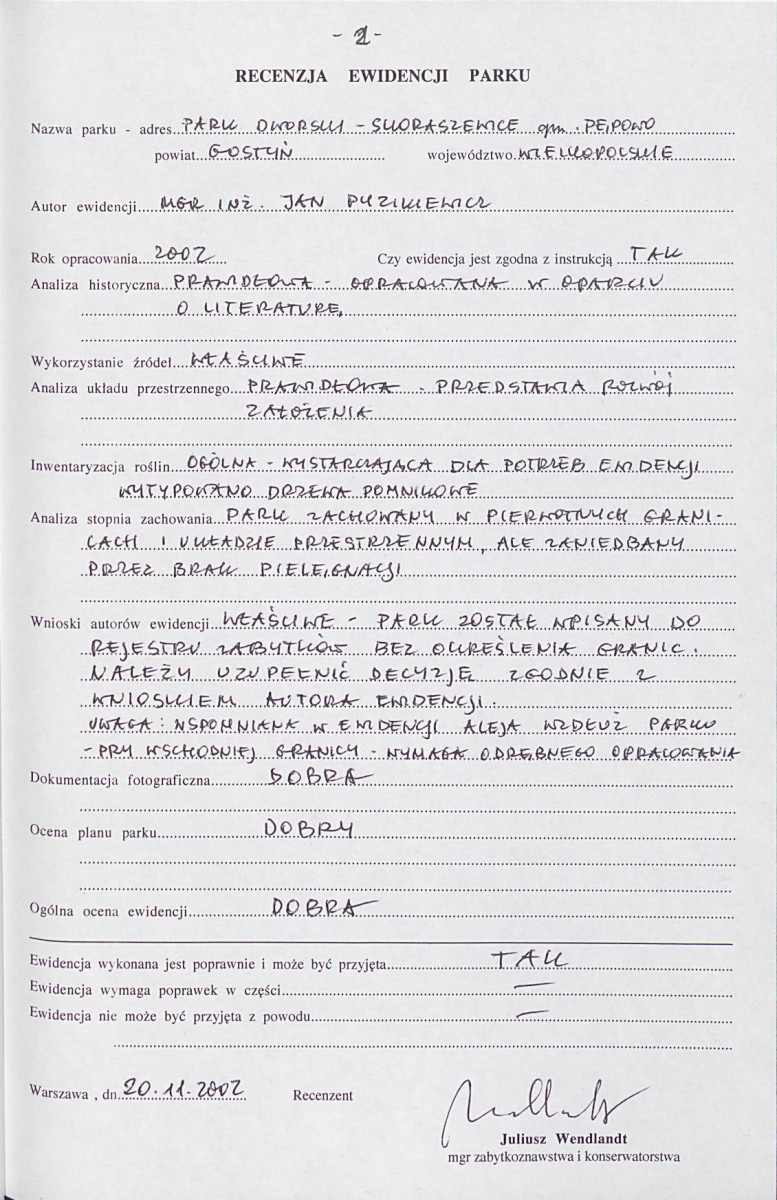 - 1 -
RECENZJA EWIDENCJI PARKU
Nazwa parku - adres PARK DWORSKI - SKORASZEWICE gm. PĘPOWO
powiat GOSTYŃ województwo WIELKOPOLSKIE
Autor ewidencji MGR INŻ. JAN PUZIKIEWICZ
Rok opracowania 2002 Czy ewidencja jest zgodna z instrukcją TAK
Analiza historyczna PRAWIDŁOWA - OPRACOWANA W OPARCIU
O LITERATURĘ
Wykorzystanie źródeł WŁAŚCIWE
Analiza układu przestrzennego PRAWIDŁOWA - PRZEDSTAWIA ROZWÓJ
ZAŁOŻENIA
Inwentaryzacja roślin OGÓLNA - WYSTARCZAJĄCA DLA POTRZEB EWIDENCJI
WYTYPOWANO DRZEWA POMNIKOWE
Analiza stopnia zachowania PARK ZACHOWANY W PIERWOTNYCH GRANI-
CACH I UKŁADZIE PRZESTRZENNYM, ALE ZANIEDBANY
PRZEZ BRAK PIELĘGNACJI
Wnioski autorów ewidencji WŁAŚCIWE - PARK ZOSTAŁ WPISANY DO
REJESTRU ZABYTKÓW BEZ OKREŚLENIA GRANIC.
NALEŻY UZUPEŁNIĆ DECYZJĘ ZGODNIE Z
WNIOSKIEM AUTORA EWIDENCJI.
UWAGA: WSPOMNIANA W EWIDENCJI ALEJA WZDŁUŻ PARKU
- PRY WSCHODNIEJ GRANICY - WYMAGA ODRĘBNEGO OPRACOWANIA
Dokumentacja fotograficzna DOBRA
Ocena planu parku DOBRY
Ogólna ocena ewidencji DOBRA
Ewidencja wykonana jest poprawnie i może być przyjęta TAK
Ewidencja wymaga poprawek w części —
Ewidencja nie może być przyjęta z powodu —
Warszawa , dn. 20.11.2002 Recenzent
Juliusz Wendlandt
mgr zabytkoznawstwa i konserwatorstwa